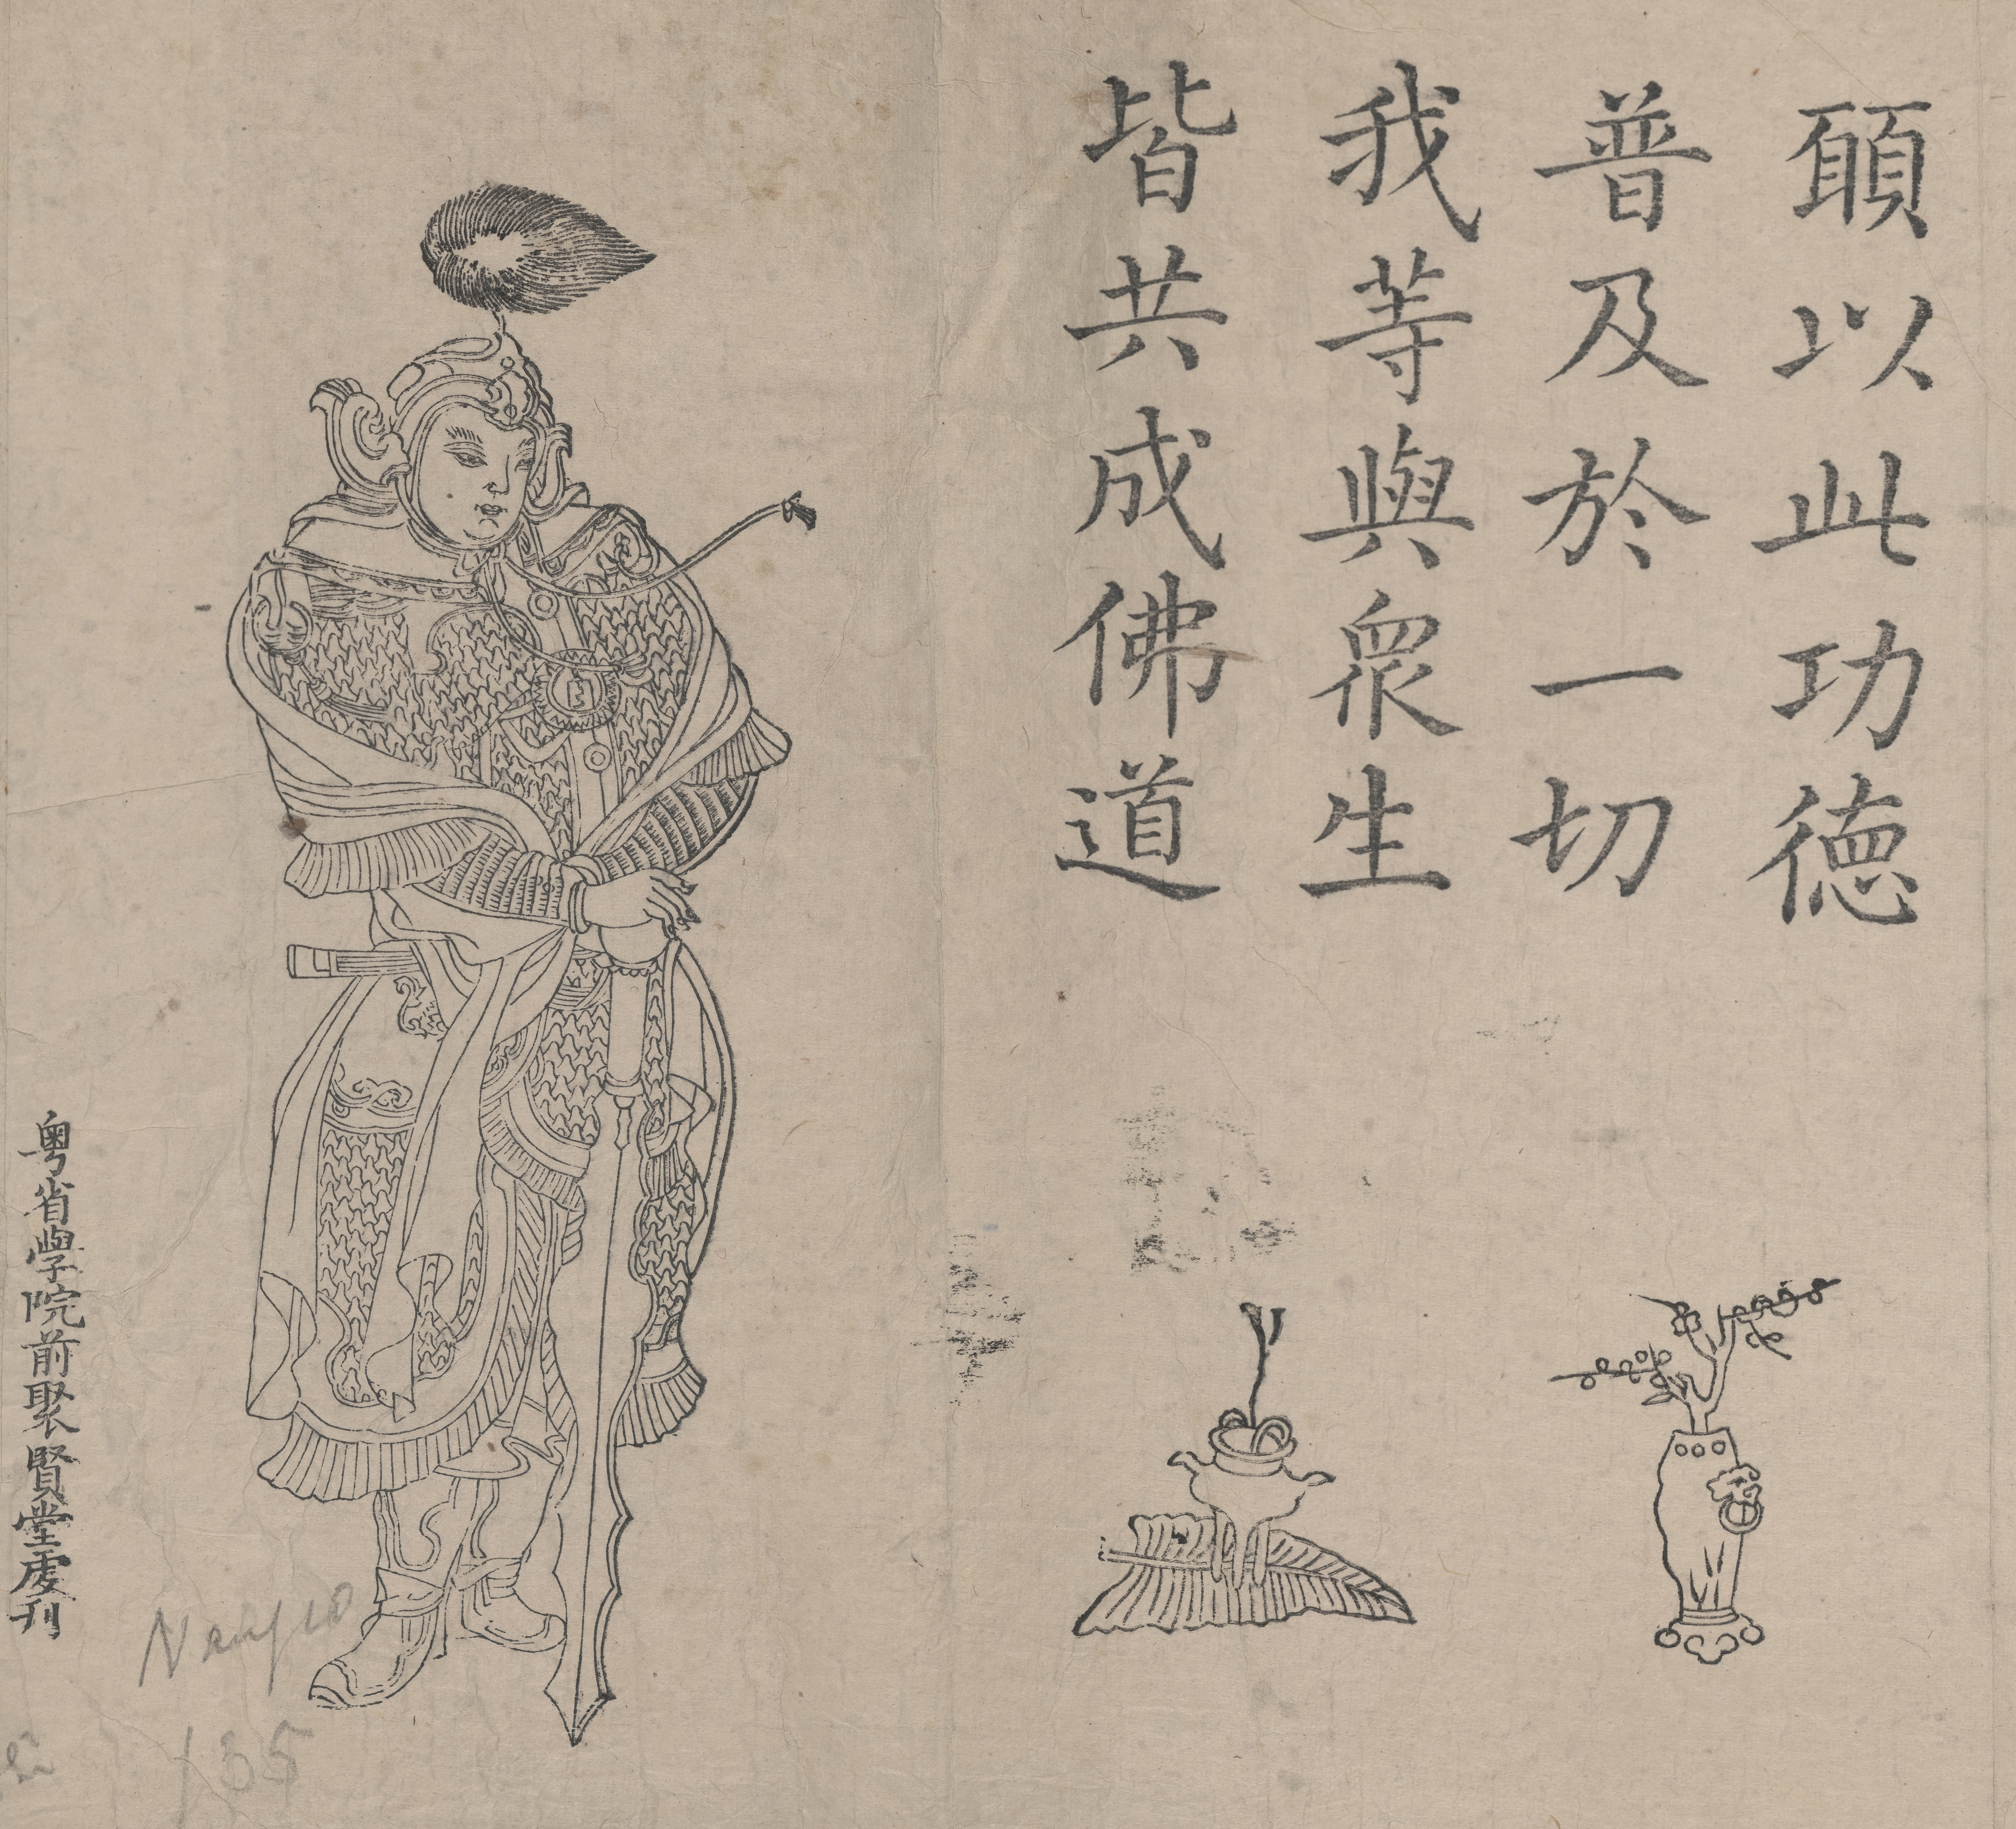 願以此功徳
普及於一切
我等與衆生
皆共成佛道
粤省學院前聚賢堂處刊
135